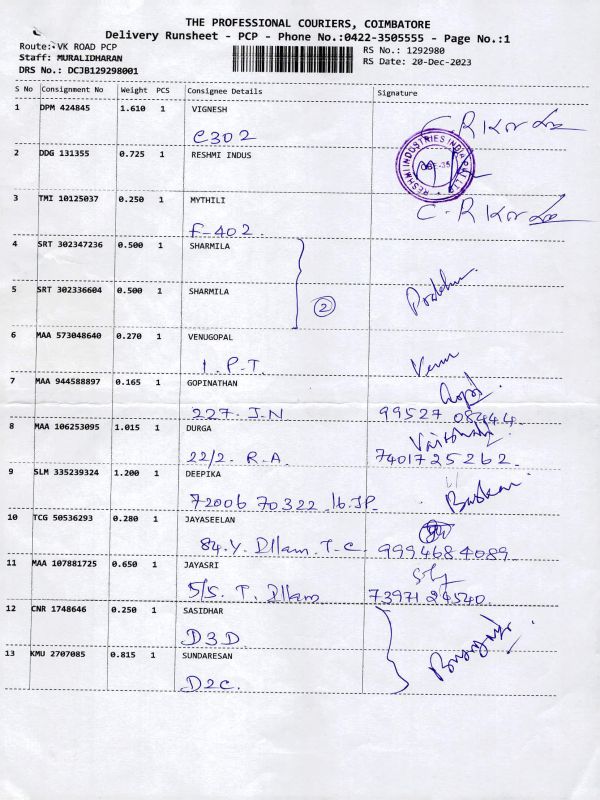 THE PROFESSIONAL COURIERS, COIMBATORE
Delivery Runsheet - PCP - Phone No.:0422-3505555 - Page No.:1
Route: VK ROAD PCP
RS No.: 1292980
Staff: MURALIDHARAN
RS Date: 20-Dec-2023
DRS No.: DCJB129298001
S No Consignment No Weight PCS Consignee Details Signature
1 DPM 424845 1.610 1 VIGNESH
C302
2 DDG 131355 0.725 1 RESHMI INDUS
RESHMI INDUSTRIES INDIA
3 TMI 10125037 0.250 1 MYTHILI
F-402.
4 SRT 302347236 0.500 1 SHARMILA
5 SRT 302336604 0.500 1 SHARMILA
2
6 MAA 573048640 0.270 1 VENUGOPAL
1. P.T.
7 MAA 944588897 0.165 1 GOPINATHAN
227. J.N 99527 08444.
8 MAA 106253095 1.015 1 DURGA
22/2. R.A. 7401725262.
9 SLM 335239324 1.200 1 DEEPIKA
72006 70322 16.JP. Baskar
10 TCG 50536293 0.280 1 JAYASEELAN
84.Y. Dllam. T-C. 9994684089
11 MAA 107881725 0.650 1 JAYASRI
5/5. T. Dllam 73971 24540
12 CNR 1748646 0.250 1 SASIDHAR
D3D.
13 KMU 2707085 0.815 1 SUNDARESAN
D2C.